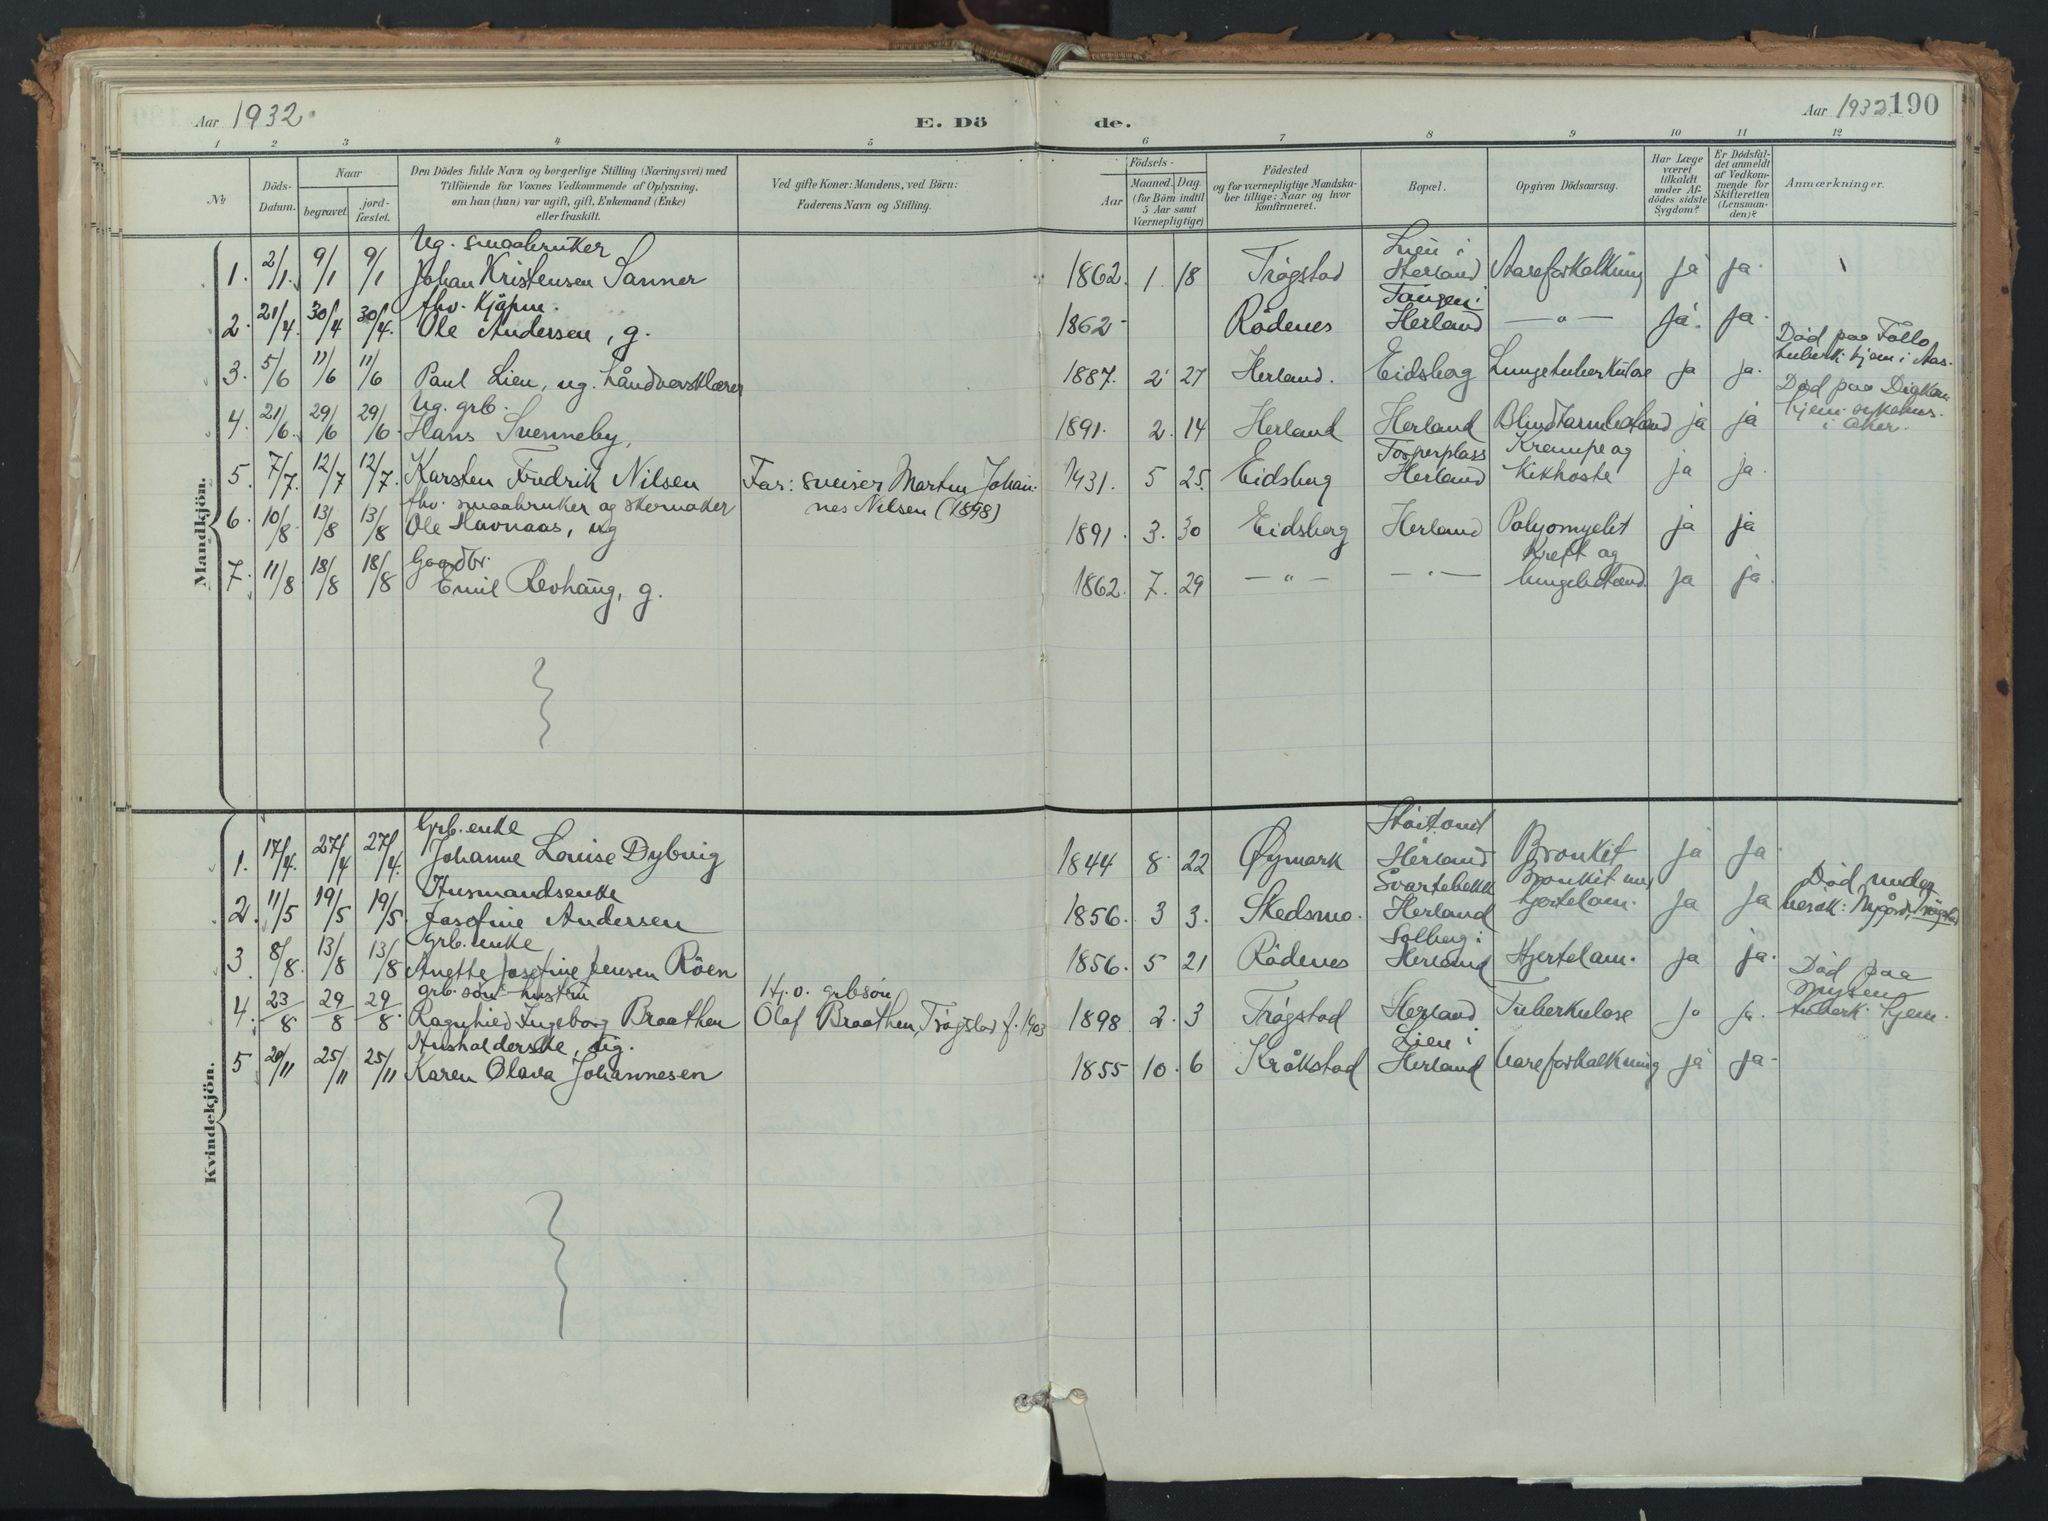 Aar 1932.
E. Dö
de.
Aar 1932. 190
1 2 3 4 5 6 7 8 9 10 11 12
No
Döds-
Datum.
Naar
begravet.
jord-
fæstet.
Den Dödes fulde Navn og borgerlige Stilling (Næringsvei) med
Tilföiende for Voxnes Vedkommende af Oplysning,
om han (hun) var ugift, gift, Enkemand (Enke)
eller fraskilt.
Ved gifte Koner: Mandens, ved Börn:
Faderens Navn og Stilling.
Födsels-
Aar
Maaned. Dag.
(for Börn indtil
5 Aar samt
Værnepligtige)
Födested
og for værnepligtige Mandska-
ber tillige: Naar og hvor
konfirmeret.
Bopæl.
Opgiven Dödsaarsag.
Har Læge
været
tilkaldt
under Af-
dödes sidste
Sygdom?
Er Dödsfal-
det anmeldt
af Vedkom-
mende for
Skifteretten
(Lensman-
den)?
Anmærkninger.
Mandkjön.
Ug. smaabruker Lien i
1. 2/1. 9/1 9/1 Johan Kristensen Sanner 1862. 1. 18 Trøgstad Herland Aareforkalkning ja ja.
fhv. Kjøpm. Tangen i
2. 21/4. 30/4 30/4. Ole Andersen, g. 1862- Rødenes Herland — " — ja. ja.
Død paa Follo
tuberk. hjem i Aas.
3. 5/6 11/6 11/6 Paul Lien, ug. håndverkslærer 1887. 2. 27 Herland. Eidsberg Lungetuberkulose ja ja.
Ug. grb. Død paa Diakon
hjem. sykehus.
4. 21/6. 29/6 29/6. Hans Svenneby, 1891. 2. 14 Herland Herland ja ja i Aker.
Krampe og
5. 7/7. 12/7 12/7. Karsten Fredrik Nilsen Far: sveiser Martin Johan- 1931. 5 25. Eidsberg Herland Kikhoste ja ja.
fhv. smaabruker og skomaker nes Nilsen (1898)
6. 10/8. 13/8 13/8 Ole Havnaas, ug 1891. 3. 30 Eidsberg Herland Polyomyelit ja ja
Gaardbr. Kreft og
7. 11/8. 18/8 18/8 Emil Revhaug, g. 1862. 7. 29 — " — — " — lungebetænd. ja ja.
Kvindekjön.
Grb. enke
1. 17/4. 27/4 27/4. Johanne Louise Dybvig 1844 8. 22 Øymark Herland Bronkit ja ja.
Husmandsenke Svartebekk Bronkit med Død under
2. 11/5 19/5 19/5. Josefine Andersen 1856. 3 3. Skedsmo. Herland hjertelam. ja ja besøk: Nygård, Trøgstad
grb. enke Solberg i
3 8/8. 13/8 13/8 Anette Josefine Jensen Röen 1856. 5 21 Rødenes Herland Hjertelam. ja ja.
grb. søns hustru H. o. grbsøn Død paa
Mysen
4. 23/8 29/8 29/8. Ragnhild Ingeborg Braathen Olaf Braathen, Trøgstad f. 1903 1898. 2. 3 Trøgstad Herland Tuberkulose ja ja. tuberk. hjem.
Husholderske, ug. Lien i
5 20/11 25/11 25/11 Karen Olava Johannesen 1855 10. 6 Kråkstad Herland Aareforkalkning ja ja.